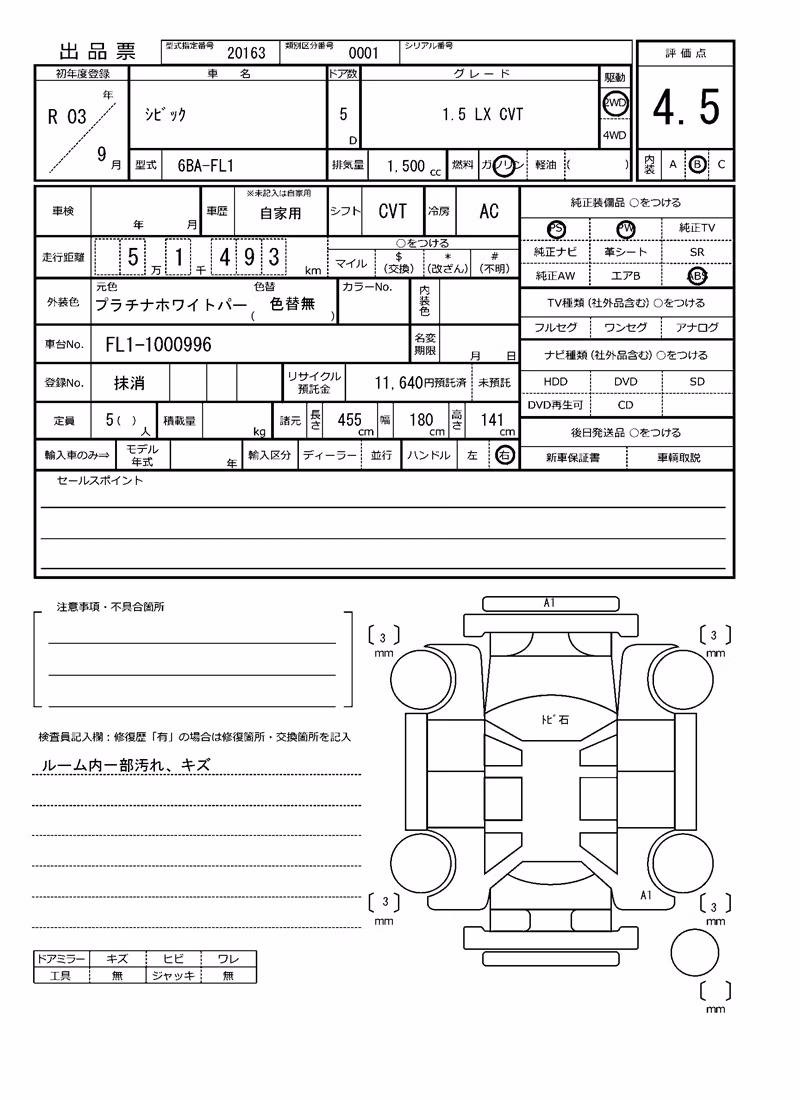 出品票 型式指定番号 20163 類別区分番号 0001 シリアル番号
評価点
初年度登録 車名 ドア数 グレード 駆動
R 03 年 9 月 ｼﾋﾞｯｸ 5 D 1.5 LX CVT 2WD 4WD
4.5
型式 6BA-FL1 排気量 1,500 cc 燃料 ガソリン 軽油 ( )
内装 A B C
車検 年 月 車歴 ※未記入は自家用 自家用 シフト CVT 冷房 AC
純正装備品 ○をつける
PS PW 純正TV
走行距離 5 万 1 千 4 9 3 km ○をつける
マイル $ (交換) * (改ざん) # (不明)
純正ナビ 革シート SR
純正AW エアB ABS
外装色 元色 プラチナホワイトパー 色替 ( 色替無 ) カラーNo. 内装色
TV種類 (社外品含む) ○をつける
フルセグ ワンセグ アナログ
車台No. FL1-1000996 名変期限 月 日
ナビ種類 (社外品含む) ○をつける
登録No. 抹消 リサイクル預託金 11,640円預託済 未預託
HDD DVD SD
DVD再生可 CD
定員 5 ( ) 人 積載量 kg 諸元 長さ 455 cm 幅 180 cm 高さ 141 cm
後日発送品 ○をつける
輸入車のみ⇒ モデル年式 年 輸入区分 ディーラー 並行 ハンドル 左 右
新車保証書 車輌取説
セールスポイント
注意事項・不具合箇所
A1
3 mm
3 mm
ﾄﾋﾞ石
検査員記入欄：修復歴「有」の場合は修復箇所・交換箇所を記入
ルーム内一部汚れ、キズ
A1
3 mm
3 mm
ドアミラー キズ ヒビ ワレ
工具 無 ジャッキ 無
mm